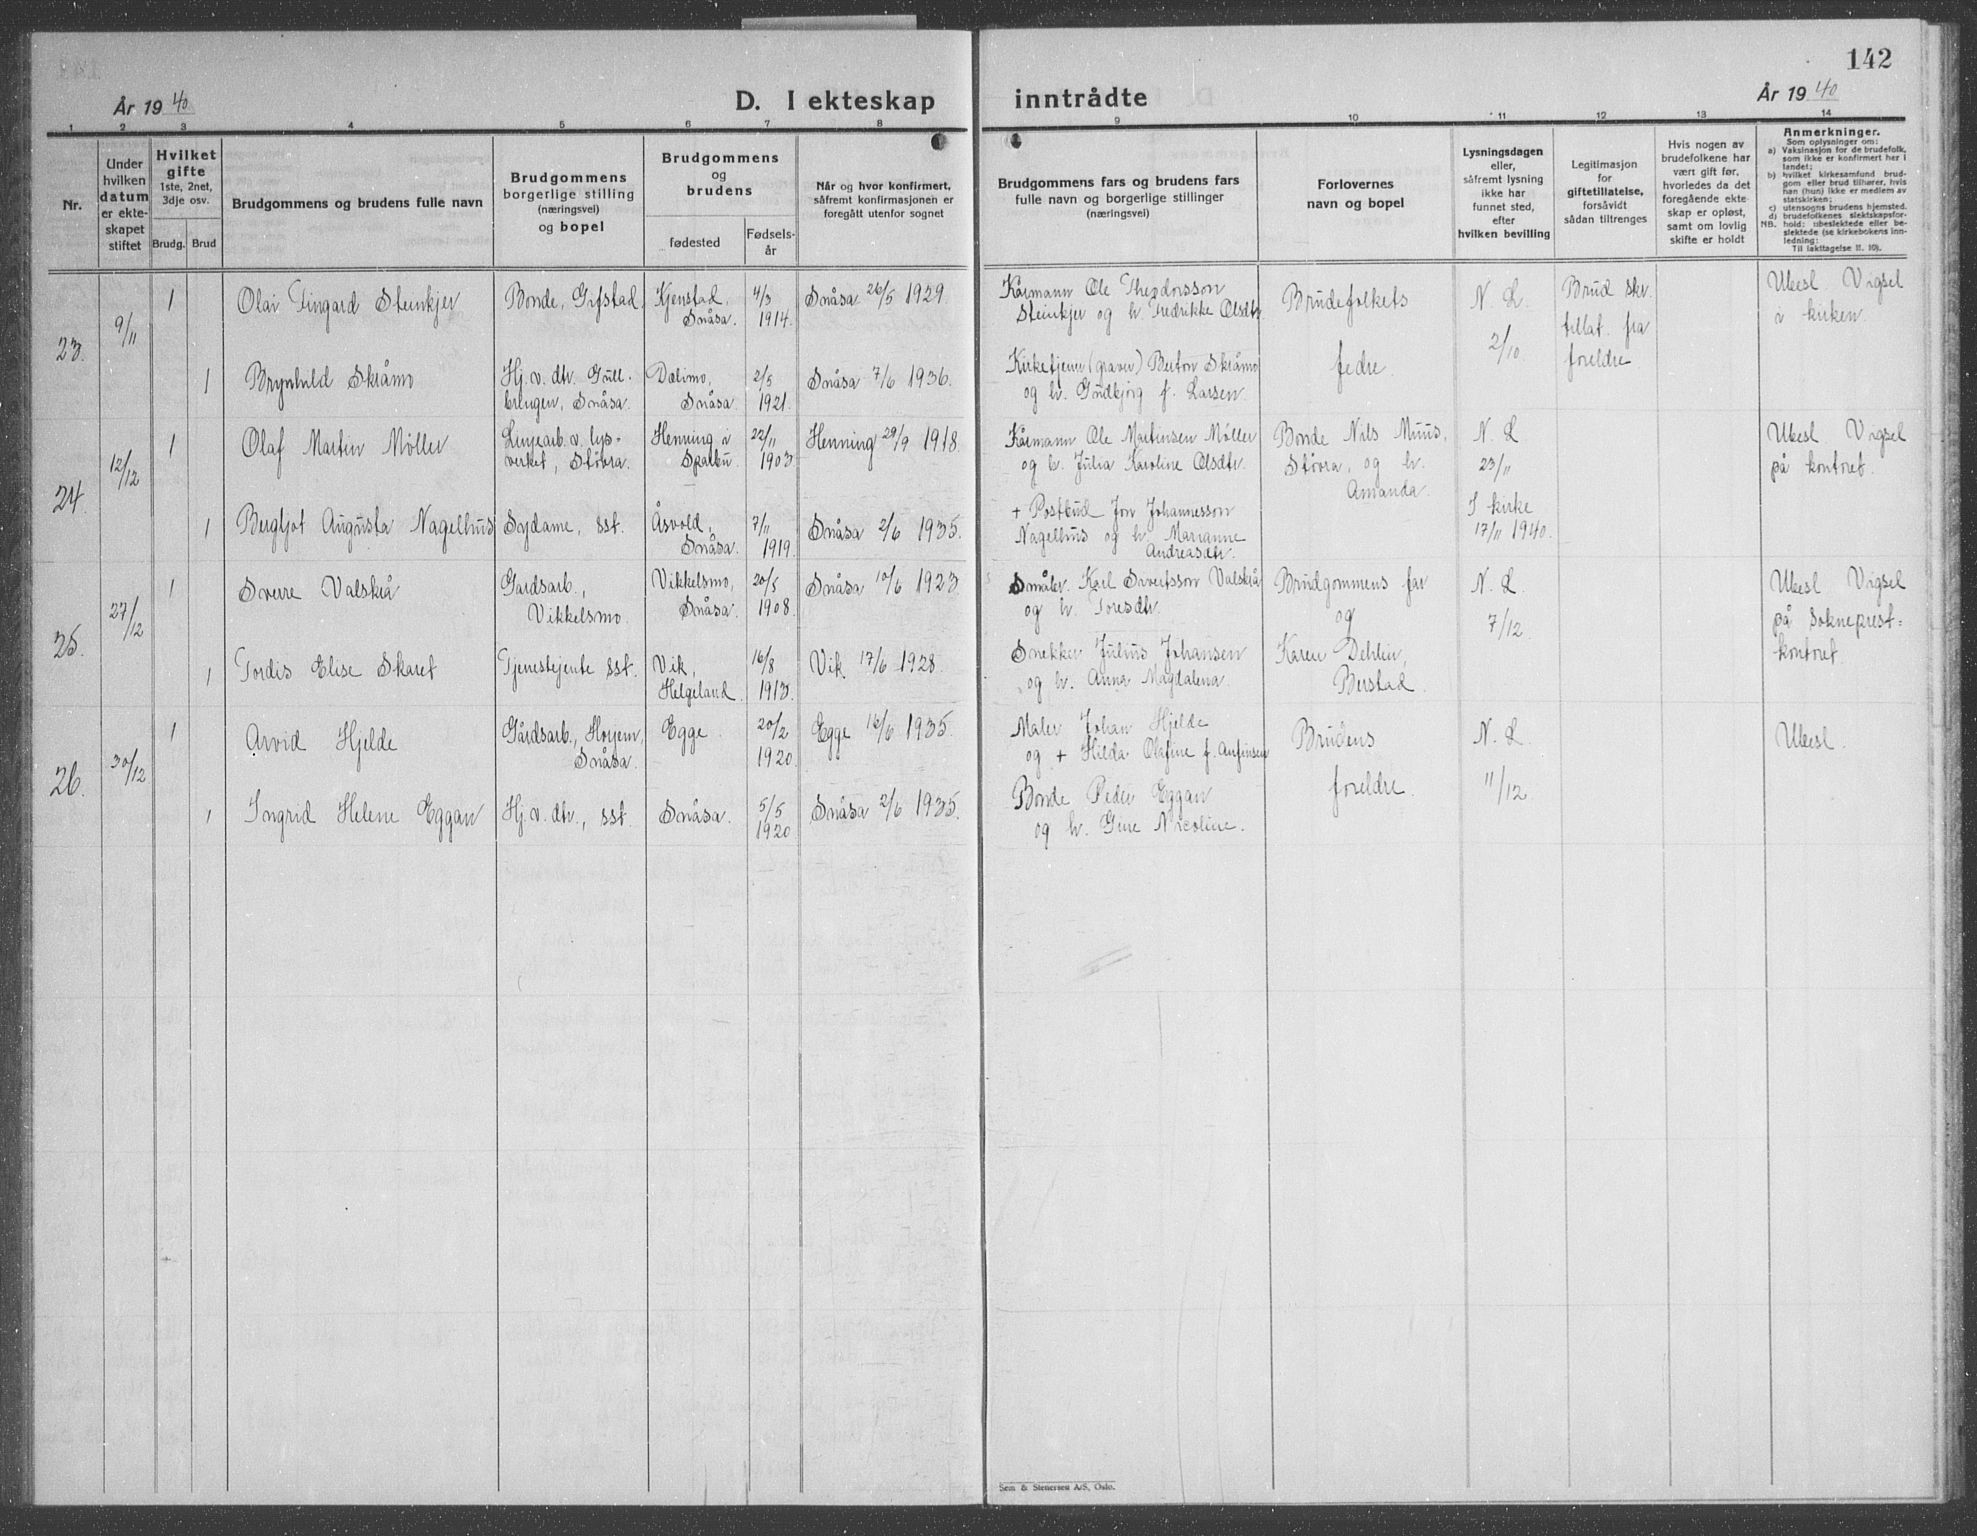 142
År 1940
D. I ekteskap inntrådte
År 1940
1 2 3 4 5 6 7 8 9 10 11 12 13 14
Nr.
Under
hvilken
datum
er ekte-
skapet
stiftet
Hvilket
gifte
1ste, 2net,
3dje osv.
Brudg. Brud
Brudgommens og brudens fulle navn
Brudgommens
borgerlige stilling
(næringsvei)
og bopel
Brudgommens
og
brudens
fødested
Fødsels-
år
Når og hvor konfirmert,
såfremt konfirmasjonen er
foregått utenfor sognet
Brudgommens fars og brudens fars
fulle navn og borgerlige stillinger
(næringsvei)
Forlovernes
navn og bopel
Lysningsdagen
eller,
såfremt lysning
ikke har
funnet sted,
efter
hvilken bevilling
Legitimasjon
for
giftetillatelse,
forsåvidt
sådan tiltrenges
Hvis nogen av
brudefolkene har
vært gift før,
hvorledes da det
foregående ekte-
skap er opløst,
samt om lovlig
skifte er holdt
Anmerkninger.
Som oplysninger om:
a) Vaksinasjon for de brudefolk,
som ikke er konfirmert her i
landet;
b) hvilket kirkesamfund brud-
gom eller brud tilhører, hvis
han (hun) ikke er medlem av
statskirken;
c) utensogns brudens hjemsted.
d) brudefolkenes slektskapsfor-
NB. hold: ubeslektede eller be-
slektede (se kirkebokens inn-
ledning;
Til iakttagelse II. 10).
23.
9/11
1
Olai Tingard Steinkjer
Bonde, Gifstad
Kjenstad,
Snåsa.
4/3
1914.
Snåsa 26/5 1929.
Kårmann Ole Theodorsson
Steinkjer og h. Fredrikke Olsdtr.
Brudefolkets
fedre.
N. L.
2/10.
Brud skr.
tillat. fra
foreldre
Ubesl. Vigsel
i kirken.
1
Brynhild Skråmo
Hj. v. dtr. Gull-
bringen, Snåsa.
Dalimo,
Snåsa.
2/5
1921.
Snåsa 7/6 1936.
Kirketjener (graver) Berton Skråmo
og h. Gudbjørg f. Larsen.
24.
12/12
1
Olaf Martin Møller
Linjearb. v. lys-
verket, Støvra.
Henning i
Sparbu.
22/11
1903
Henning 29/9 1918.
Kårmann Ole Martinsen Møller
og h. Julia Karoline Olsdtr.
Bonde Nils Muus,
Støvra, og h.
Amanda.
N. L
23/11
I kirke
17/11 1940.
Ubesl. Vigsel
på kontoret.
1
Bergljot Augusta Nagelhus
Sydame, sst.
Åsvold,
Snåsa.
7/11
1919.
Snåsa 2/6 1935.
+ Postbud Jon Johannesson
Nagelhus og h. Marianne
Andreasdtr.
25.
27/12
1
Sverre Valskrå
Gardsarb.,
Vikkelsmo.
Vikkelsmo,
Snåsa.
20/5
1908.
Snåsa 10/6 1923
Småbr. Karl Sivertsson Valskrå
og h. Toresdtr.
Brudgommens far
og
Karen Dehlin,
Berstad.
N. L.
7/12.
Ubesl. Vigsel
på Sokneprest-
kontoret.
1
Tordis Elise Skaret
Tjenestejente sst.
Vik,
Helgeland
16/8
1913.
Vik. 17/6 1928.
Snekker Julius Johansen
og h. Anna Magdalena.
26.
30/12
1
Arvid Hjelde
Gårdsarb., Horjem,
Snåsa.
Egge.
20/2
1920.
Egge 16/6 1935.
Maler Johan Hjelde
og + Hilda Olafine f. Anfinsen
Brudens
foreldre.
N. L
11/12
Ubesl.
1
Ingrid Helene Eggan
Hj. v. dtr., sst.
Snåsa.
5/5
1920
Snåsa 2/6 1935.
Bonde Peder Eggan
og h. Gine Nicoline.
Sem & Stenersen A/S, Oslo.